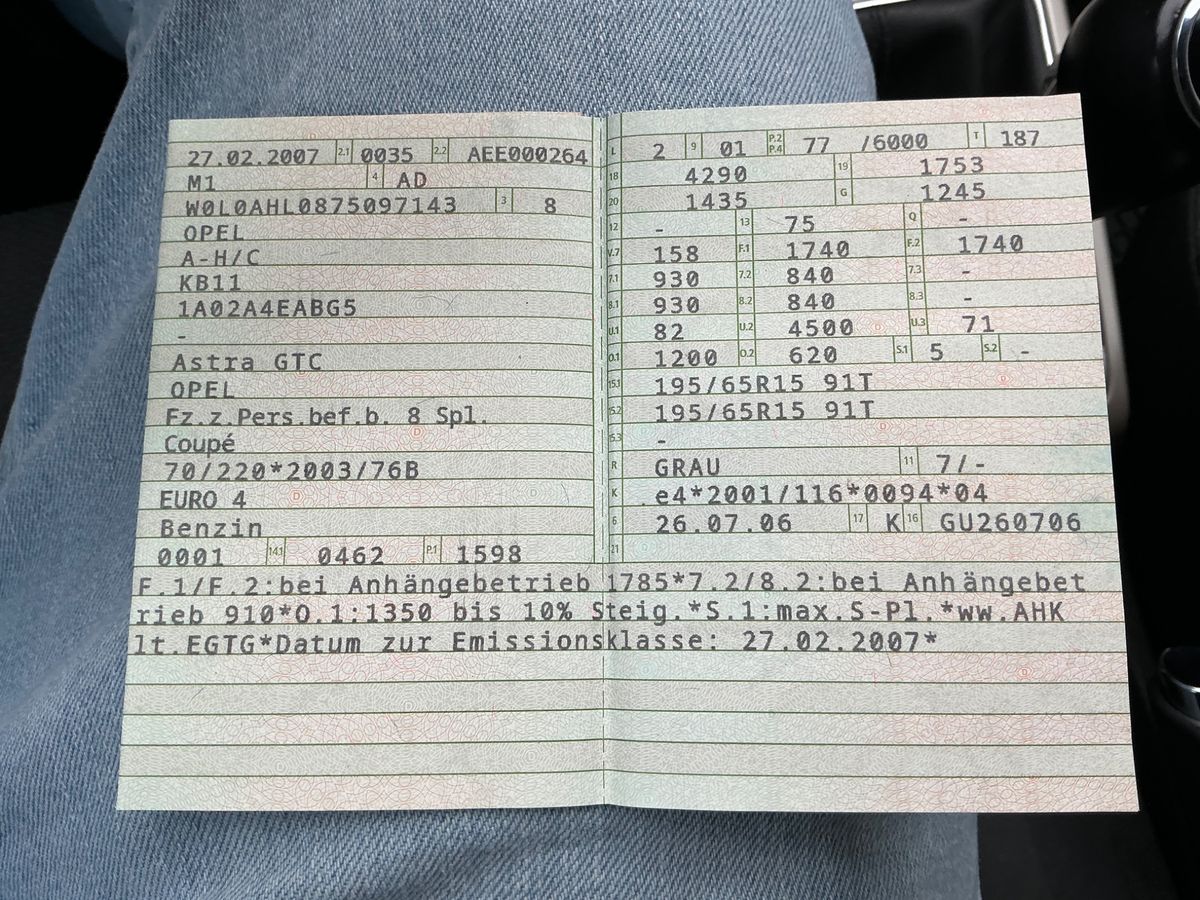 27.02.2007 2.1 0035 2.2 AEE000264
M1 4 AD
W0L0AHL0875097143 3 8
OPEL
A-H/C
KB11
1A02A4EABG5
-
Astra GTC
OPEL
Fz.z.Pers.bef.b. 8 Spl.
Coupé
70/220*2003/76B
EURO 4
Benzin
0001 14.1 0462 P.1 1598
L 2 9 01 P.2 P.4 77 /6000 T 187
18 4290 19 1753
20 1435 G 1245
12 - 13 75 Q -
V.7 158 F.1 1740 F.2 1740
7.1 930 7.2 840 7.3 -
8.1 930 8.2 840 8.3 -
U.1 82 U.2 4500 U.3 71
O.1 1200 O.2 620 S.1 5 S.2 -
15.1 195/65R15 91T
15.2 195/65R15 91T
15.3 -
R GRAU 11 7/-
K e4*2001/116*0094*04
6 26.07.06 17 K 16 GU260706
21
F.1/F.2:bei Anhängebetrieb 1785*7.2/8.2:bei Anhängebet
rieb 910*O.1:1350 bis 10% Steig.*S.1:max.S-Pl.*ww.AHK
lt.EGTG*Datum zur Emissionsklasse: 27.02.2007*